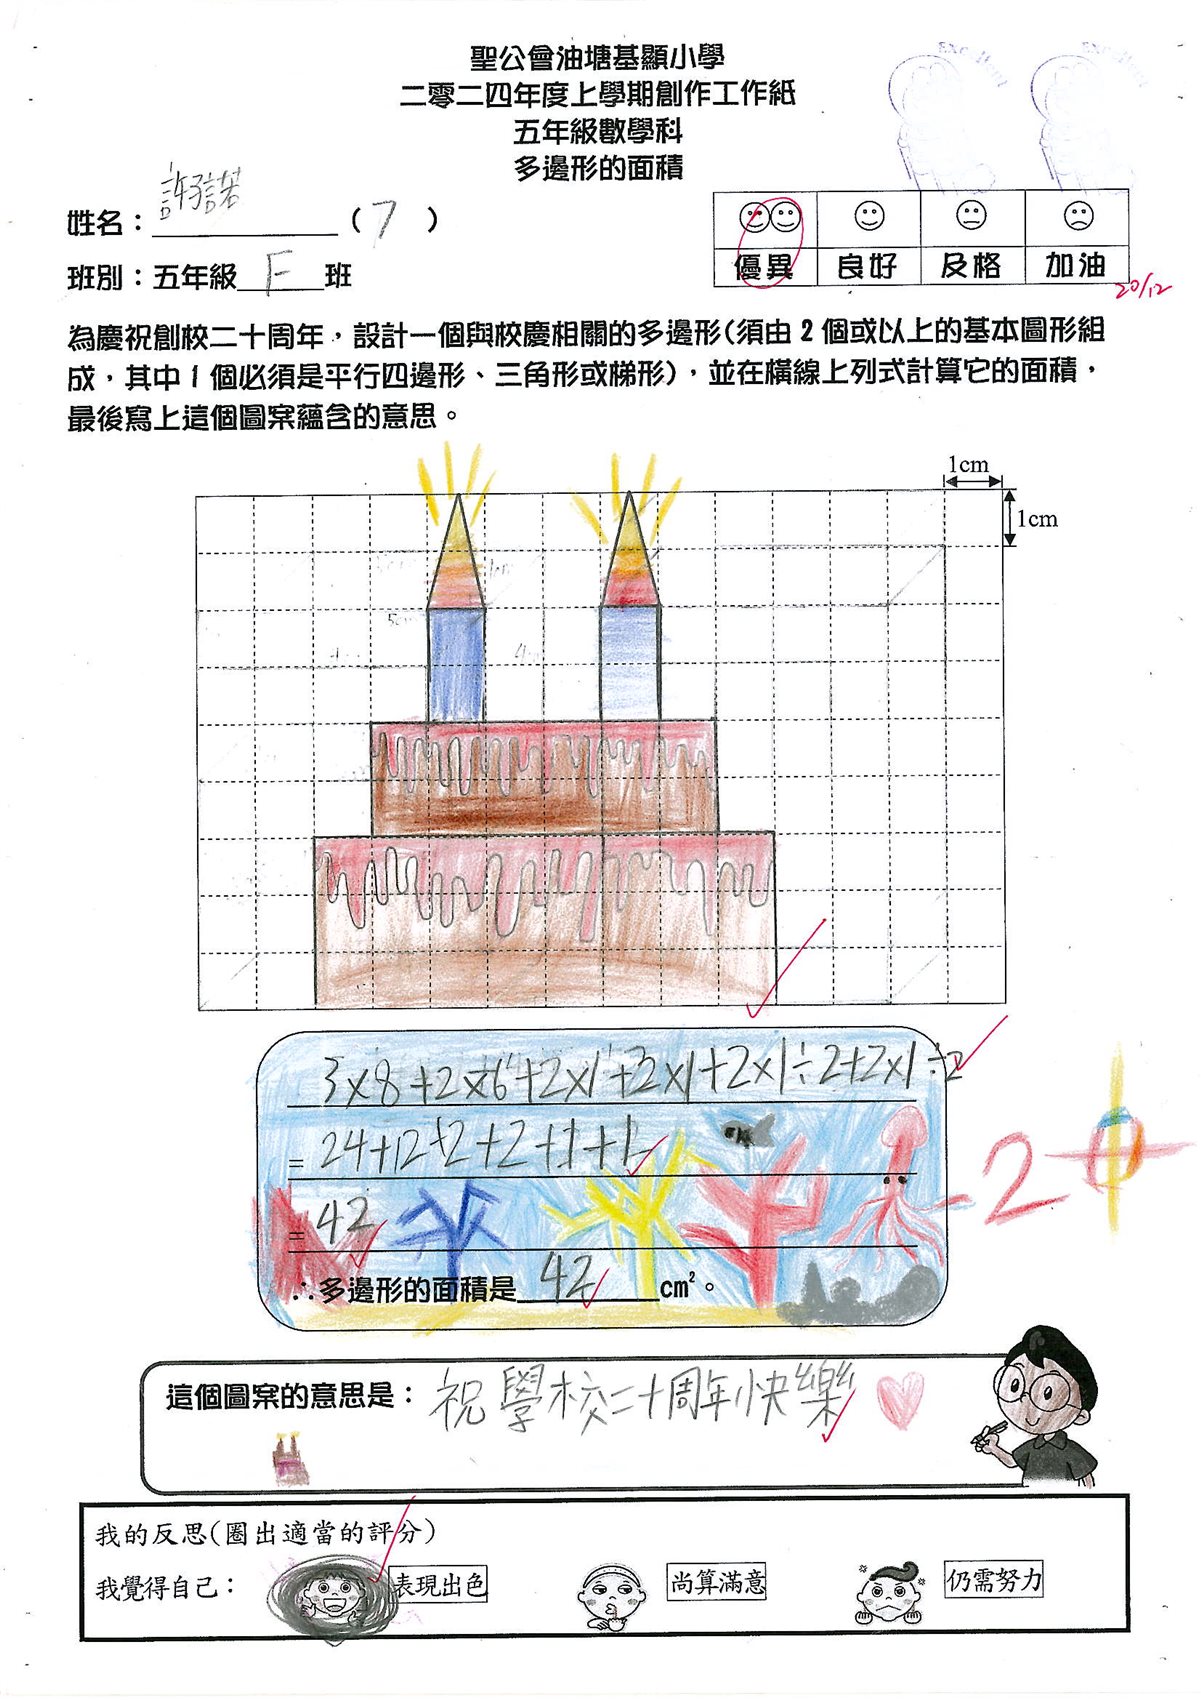 聖公會油塘基顯小學
二零二四年度上學期創作工作紙
五年級數學科
多邊形的面積
Excellent Excellent
姓名：許諾（7）
班別：五年級F班
優異 良好 及格 加油
20/12
為慶祝創校二十周年，設計一個與校慶相關的多邊形(須由2個或以上的基本圖形組
成，其中1個必須是平行四邊形、三角形或梯形)，並在橫線上列式計算它的面積，
最後寫上這個圖案蘊含的意思。
1cm
1cm
3×8+2×6+2×1+2×1+2×1÷2+2×1÷2
=24+12+2+2+1+1
=42
20
∴多邊形的面積是42cm²。
這個圖案的意思是：祝學校二十周年快樂
我的反思(圈出適當的評分)
我覺得自己： 表現出色 尚算滿意 仍需努力